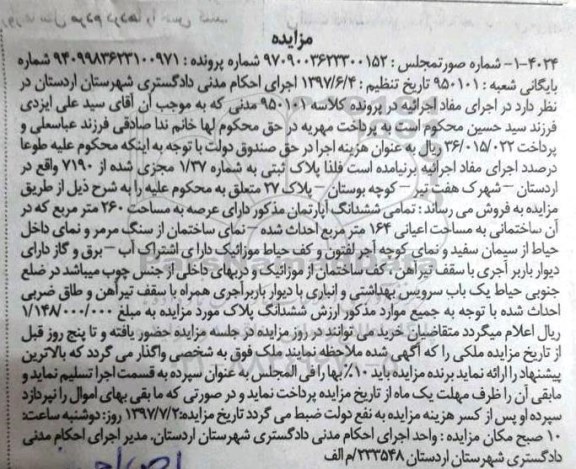 مزایده
۴۰۳۴-۱- شماره صورتمجلس : ۹۷۰۹۰۰۳۶۲۳۳۰۰۱۵۲ شماره پرونده : ۹۴۰۹۹۸۳۶۲۳۱۰۰۹۷۱ شماره
بایگانی شعبه : ۹۵۰۱۰۱ تاریخ تنظیم : ۱۳۹۷/۶/۴ اجرای احکام مدنی دادگستری شهرستان اردستان در
نظر دارد در اجرای مفاد اجرائیه در پرونده کلاسه ۹۵۰۱۰۱ مدنی که به موجب آن آقای سید علی ایزدی
فرزند سید حسین محکوم است به پرداخت مهریه در حق محکوم لها خانم ندا صادقی فرزند عباسعلی و
پرداخت ۳۶/۰۱۵/۰۲۲ ریال به عنوان هزینه اجرا در حق صندوق دولت با توجه به اینکه محکوم علیه طوعا
درصدد اجرای مفاد اجرائیه برنیامده است فلذا پلاک ثبتی به شماره ۱/۳۷ مجزی شده از ۷۱۹۰ واقع در
اردستان – شهرک هفت تیر – کوچه بوستان – پلاک ۲۷ متعلق به محکوم علیه را به شرح ذیل از طریق
مزایده به فروش می رساند : تمامی ششدانگ آپارتمان مذکور دارای عرصه به مساحت ۲۶۰ متر مربع که در
آن ساختمانی به مساحت اعیانی ۱۶۴ متر مربع احداث شده – نمای ساختمان از سنگ مرمر و نمای داخل
حیاط از سیمان سفید و نمای کوچه آجر لفتون و کف حیاط موزائیک دارا ی اشتراک آب – برق و گاز دارای
دیوار باربر آجری با سقف تیرآهن . کف ساختمان از موزائیک و دربهای داخلی از جنس چوب میباشد در ضلع
جنوبی حیاط یک باب سرویس بهداشتی و انباری با دیوار باربرآجری همراه با سقف تیرآهن و طاق ضربی
احداث شده با توجه به جمیع موارد مذکور ارزش ششدانگ پلاک مورد مزایده به مبلغ ۱/۱۴۸/۰۰۰/۰۰۰
ریال اعلام میگردد متقاضیان خرید می توانند در روز مزایده در جلسه مزایده حضور یافته و تا پنج روز قبل
از تاریخ مزایده ملکی را که آگهی شده ملاحظه نمایند ملک فوق به شخصی واگذار می گردد که بالاترین
پیشنهاد را ارائه نماید برنده مزایده باید ۱۰٪ بها را فی المجلس به عنوان سپرده به قسمت اجرا تسلیم نماید و
مابقی آن را ظرف مهلت یک ماه از تاریخ مزایده پرداخت نماید و در صورتی که ما بقی بهای اموال را نپردازد
سپرده او پس از کسر هزینه مزایده به نفع دولت ضبط می گردد تاریخ مزایده: ۱۳۹۷/۷/۲ روز: دوشنبه ساعت:
۱۰ صبح مکان مزایده : واحد اجرای احکام مدنی دادگستری شهرستان اردستان. مدیر اجرای احکام مدنی
دادگستری شهرستان اردستان ۲۳۳۵۴۸/م الف